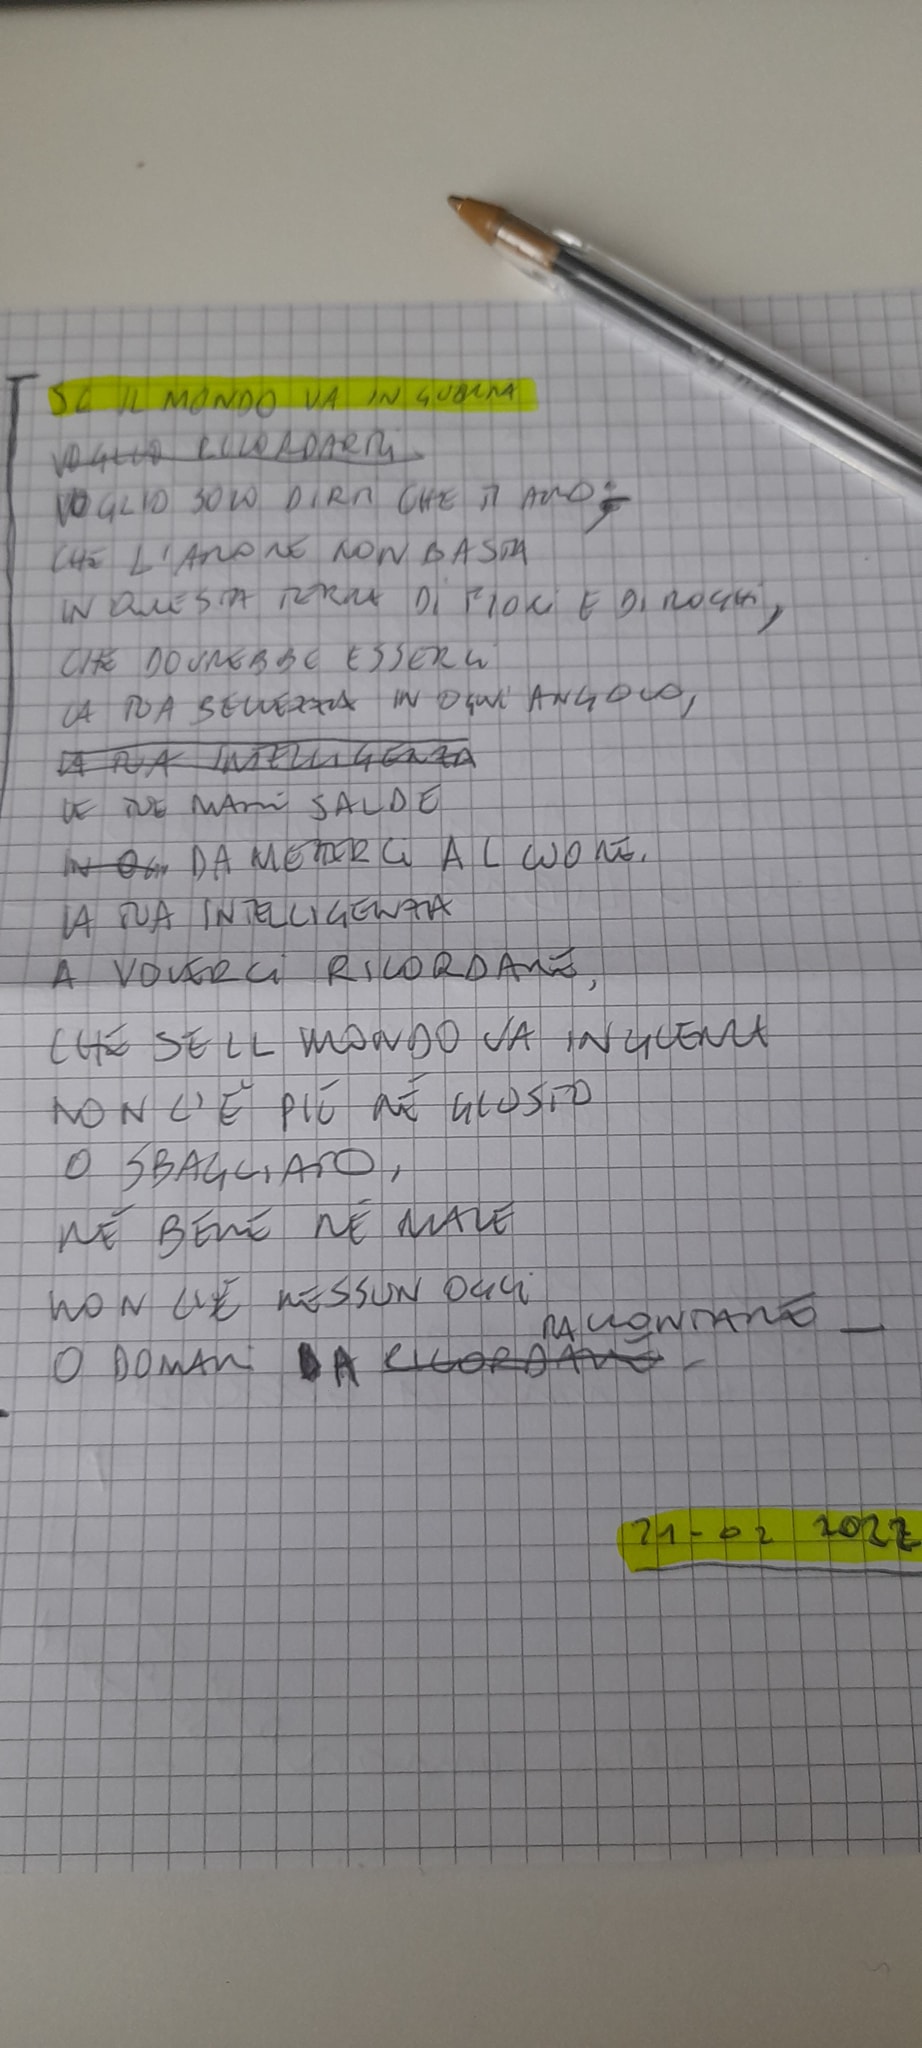 SE IL MONDO VA IN GUERRA
VOGLIO RICORDARTI
VOGLIO SOLO DIRTI CHE TI AMO;
CHE L'AMORE NON BASTA
IN QUESTA TERRA DI FIORI E DI ROGHI,
CHE DOVREBBE ESSERCI
LA TUA BELLEZZA IN OGNI ANGOLO,
LA TUA INTELLIGENZA
LE TUE MANI SALDE
IN OGNI DA METTERCI AL CUORE.
LA TUA INTELLIGENZA
A VOLERCI RICORDARE,
CHE SE IL MONDO VA IN GUERRA
NON C'È PIÙ NÉ GIUSTO
O SBAGLIATO,
NÉ BENE NÉ MALE
NON C'È NESSUN OGGI
RACCONTARE
O DOMANI DA RICORDARE
21-02 2022